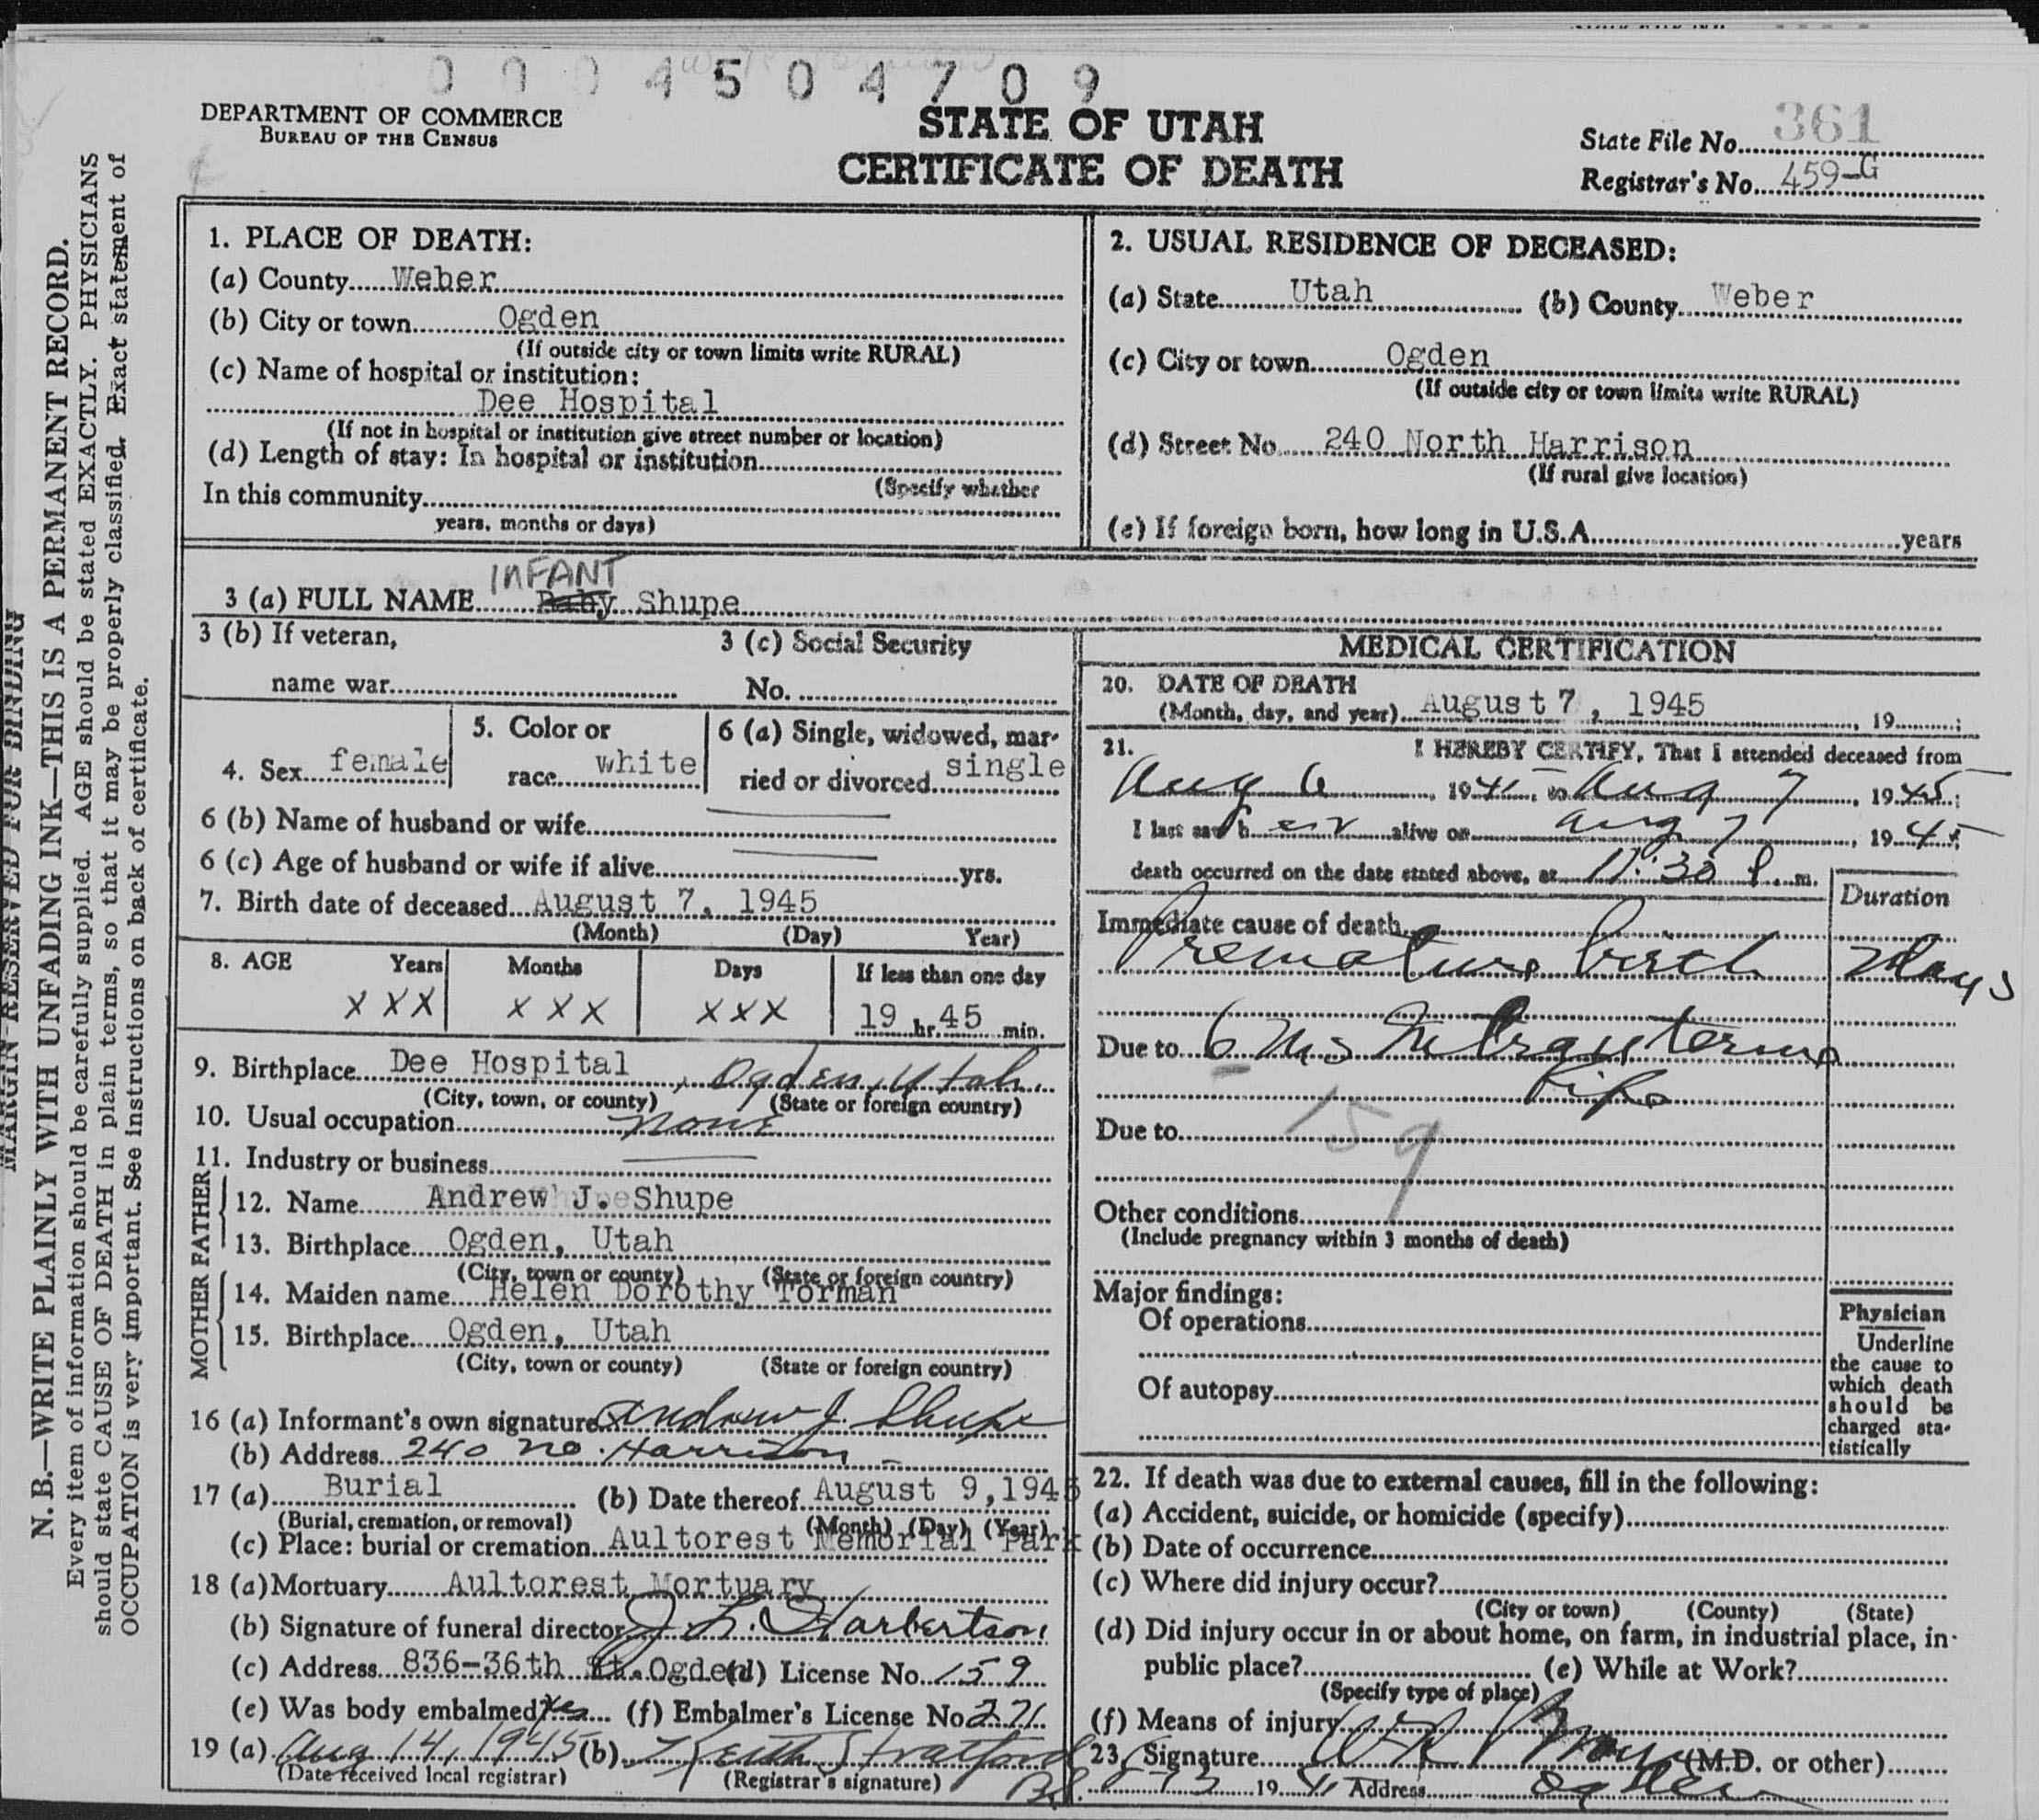 0004504709
DEPARTMENT OF COMMERCE
BUREAU OF THE CENSUS
STATE OF UTAH
CERTIFICATE OF DEATH
State File No. 361
Registrar's No. 459-G
MARGIN RESERVED FOR BINDING
N. B.—WRITE PLAINLY WITH UNFADING INK—THIS IS A PERMANENT RECORD.
Every item of information should be carefully supplied. AGE should be stated EXACTLY. PHYSICIANS
should state CAUSE OF DEATH in plain terms, so that it may be properly classified. Exact statement of
OCCUPATION is very important. See instructions on back of certificate.
1. PLACE OF DEATH:
(a) County Weber
(b) City or town Ogden
(If outside city or town limits write RURAL)
(c) Name of hospital or institution:
Dee Hospital
(If not in hospital or institution give street number or location)
(d) Length of stay: In hospital or institution
(Specify whether
In this community
years, months or days)
2. USUAL RESIDENCE OF DECEASED:
(a) State Utah (b) County Weber
(c) City or town Ogden
(If outside city or town limits write RURAL)
(d) Street No. 240 North Harrison
(If rural give location)
(e) If foreign born, how long in U.S.A. years
INFANT
3 (a) FULL NAME Baby Shupe
3 (b) If veteran, 3 (c) Social Security
name war No.
4. Sex female
5. Color or
race white
6 (a) Single, widowed, mar-
ried or divorced single
6 (b) Name of husband or wife
6 (c) Age of husband or wife if alive yrs.
7. Birth date of deceased August 7, 1945
(Month) (Day) Year)
8. AGE Years Months Days If less than one day
XXX XXX XXX 19 hr. 45 min.
9. Birthplace Dee Hospital, Ogden, Utah.
(City, town, or county) (State or foreign country)
10. Usual occupation none
11. Industry or business
FATHER
12. Name Andrew J. Shupe
13. Birthplace Ogden, Utah
(City, town or county) (State or foreign country)
MOTHER
14. Maiden name Helen Dorothy Torman
15. Birthplace Ogden, Utah
(City, town or county) (State or foreign country)
16 (a) Informant's own signature Andrew J. Shupe
(b) Address 240 No. Harrison
17 (a) Burial (b) Date thereof August 9, 1945
(Burial, cremation, or removal) (Month) (Day) (Year)
(c) Place: burial or cremation Aultorest Memorial Park
18 (a) Mortuary Aultorest Mortuary
(b) Signature of funeral director J L. Harbertson
(c) Address 836-36th St. Ogden (d) License No. 159
(e) Was body embalmed? Yes (f) Embalmer's License No 221
19 (a) Aug 14, 1945 (b) Keith Stratford
(Date received local registrar) (Registrar's signature)
MEDICAL CERTIFICATION
20. DATE OF DEATH
(Month, day, and year) August 7, 1945, 19 ;
21. I HEREBY CERTIFY, That I attended deceased from
Aug 6, 1945, to Aug 7, 1945;
I last saw h er alive on Aug 7, 1945;
death occurred on the date stated above, at 11:30 P. m.
Duration
Immediate cause of death
Premature birth 2 days
Due to 6 Mos
life
Due to
159
Other conditions
(Include pregnancy within 3 months of death)
Major findings:
Of operations
Of autopsy
Physician
Underline
the cause to
which death
should be
charged sta-
tistically
22. If death was due to external causes, fill in the following:
(a) Accident, suicide, or homicide (specify)
(b) Date of occurrence
(c) Where did injury occur?
(City or town) (County) (State)
(d) Did injury occur in or about home, on farm, in industrial place, in
public place? (e) While at Work?
(Specify type of place)
(f) Means of injury
23. Signature (M.D. or other)
19 Address Ogden